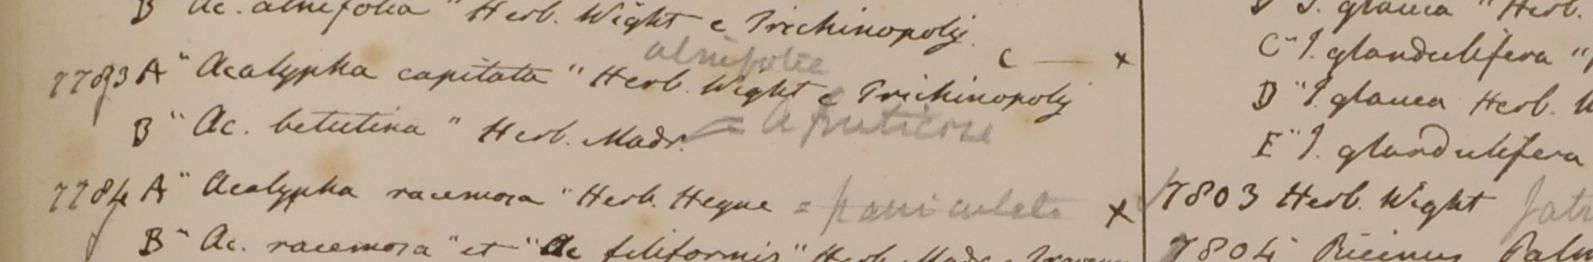 B "Ac. alnifolia" Herb. Wight e Trichinopoly.
alnifolia C — x
7783 A "Acalypha capitata" Herb. Wight e Trichinopoly
B "Ac. betulina" Herb. Madr. = A fruticosa
7784 A "Acalypha racemosa" Herb. Heyne = paniculata x
B "Ac. racemosa" et "Ac filiformis" Herb. Madr.
glauca "Herb.
C "J. glandulifera "
D "J. glauca Herb.
E "J. glandulifera
7803 Herb. Wight
7804 Ricinus